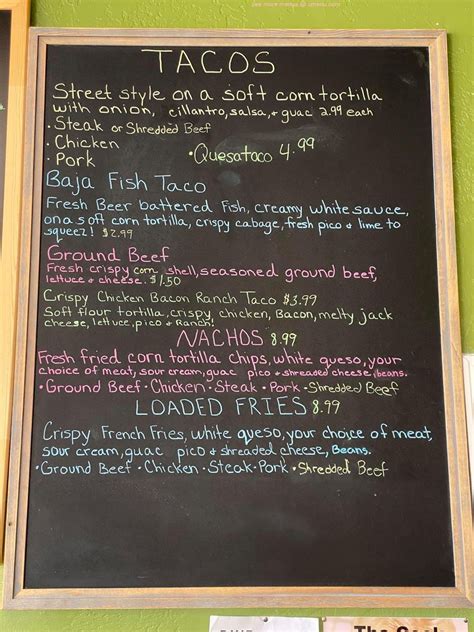 see more menus @ zmenu.com
TACOS
Street style on a soft corn tortilla
with onion, cillantro, salsa, & guac 2.99 each
• Steak or Shredded Beef
• Chicken
• Quesataco 4.99
• Pork
Baja Fish Taco
Fresh Beer battered Fish, creamy white sauce,
on a soft corn tortilla, crispy cabage, fresh pico & lime to
squeez! $2.99
Ground Beef
Fresh crispy corn shell, seasoned ground beef,
lettuce & cheese. $1.50
Crispy Chicken Bacon Ranch Taco $3.99
Soft flour tortilla, crispy, chicken, Bacon, melty jack
cheese, lettuce, pico & Ranch!
NACHOS 8.99
Fresh fried corn tortilla chips, white queso, your
choice of meat, sour cream, guac pico & shreaded cheese, beans.
• Ground Beef • Chicken • Steak • Pork • Shredded Beef
LOADED FRIES 8.99
Crispy French Fries, white queso, your choice of meat,
sour cream, guac pico & shreaded cheese, Beans.
• Ground Beef • Chicken • Steak • Pork • Shredded Beef